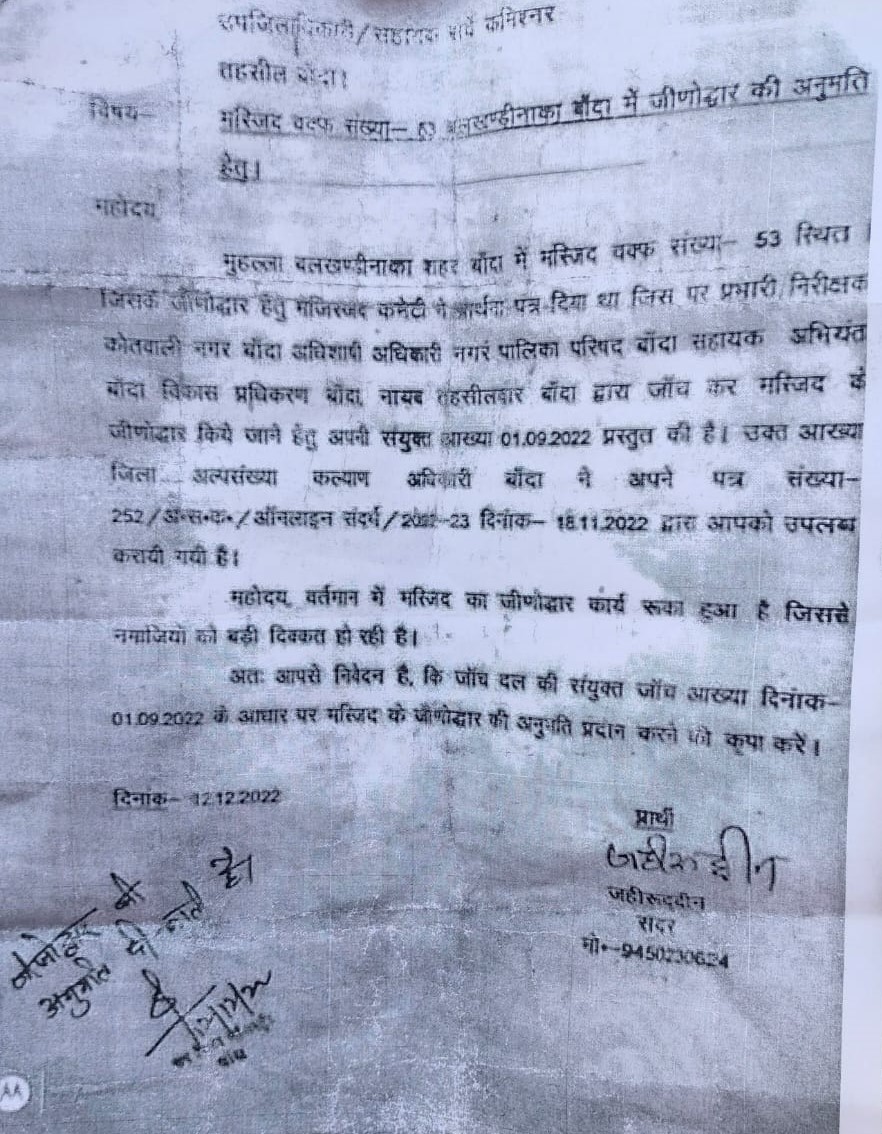 उपजिलाधिकारी/सहायक सर्वे कमिश्नर
तहसील बाँदा।
विषय—
मस्जिद वक्फ संख्या— 53 बलखण्डीनाका बाँदा में जीणोद्धार की अनुमति
हेतु।
महोदय
मुहल्ला बलखण्डीनाका शहर बाँदा में मस्जिद वक्फ संख्या— 53 स्थित
जिसके जीणोद्धार हेतु मजिस्जद कमेटी ने प्रार्थना पत्र दिया था जिस पर प्रभारी/निरीक्षक
कोतवाली नगर बाँदा अधिशाषी अधिकारी नगर पालिका परिषद बाँदा सहायक अभियंत
बाँदा विकास प्रधिकरण बाँदा, नायब तहसीलदार बाँदा द्वारा जाँच कर मस्जिद के
जीणोद्धार किये जाने हेतु अपनी संयुक्त आख्या 01.09.2022 प्रस्तुत की है। उक्त आख्या
जिला अल्पसंख्या कल्याण अधिकारी बाँदा ने अपने पत्र संख्या—
252/अ॰स॰क॰/ऑनलाइन संदर्भ/2022-23 दिनाक— 18.11.2022 द्वारा आपको उपलब्ध
करायी गयी है।
महोदय, वर्तमान में मस्जिद का जीणोद्धार कार्य रूका हुआ है जिससे
नमाजियों को बड़ी दिक्कत हो रही है।
अतः आपसे निवेदन है, कि जाँच दल की संयुक्त जाँच आख्या दिनांक—
01.09.2022 के आधार पर मस्जिद के जीणोद्धार की अनुमति प्रदान करने की कृपा करें।
दिनांक— 12.12.2022
प्रार्थी
जहीरूद्दीन
जहीरूददीन
सदर
मो॰—9450230624
जीर्णोद्धार की
अनुमति दी जाती है।
बांदा
AA